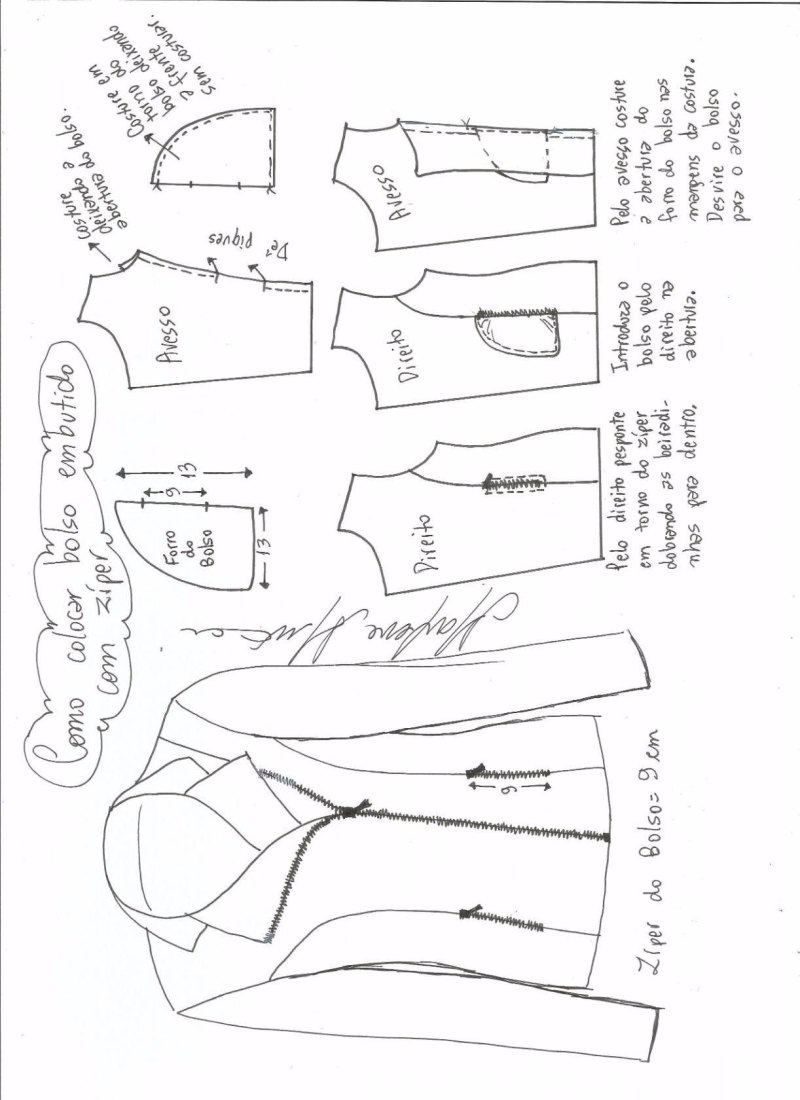 Como colocar bolso embutido
com zíper
9
13
Forro
do
Bolso
13
costure
deixando a
abertura do bolso.
Avesso
Dê piques
Costure em
torno do
bolso deixando
a frente
sem costurar.
Marlene Mukai
Direito
Direito
Avesso
Pelo direito pesponte
em torno do zíper
dobrando as beiradi-
nhas para dentro.
Introduza o
bolso pelo
direito na
abertura.
Pelo avesso costure
a abertura do
forro do bolso nas
margens de costura.
Desvire o bolso
para o avesso.
9
Zíper do Bolso= 9 cm